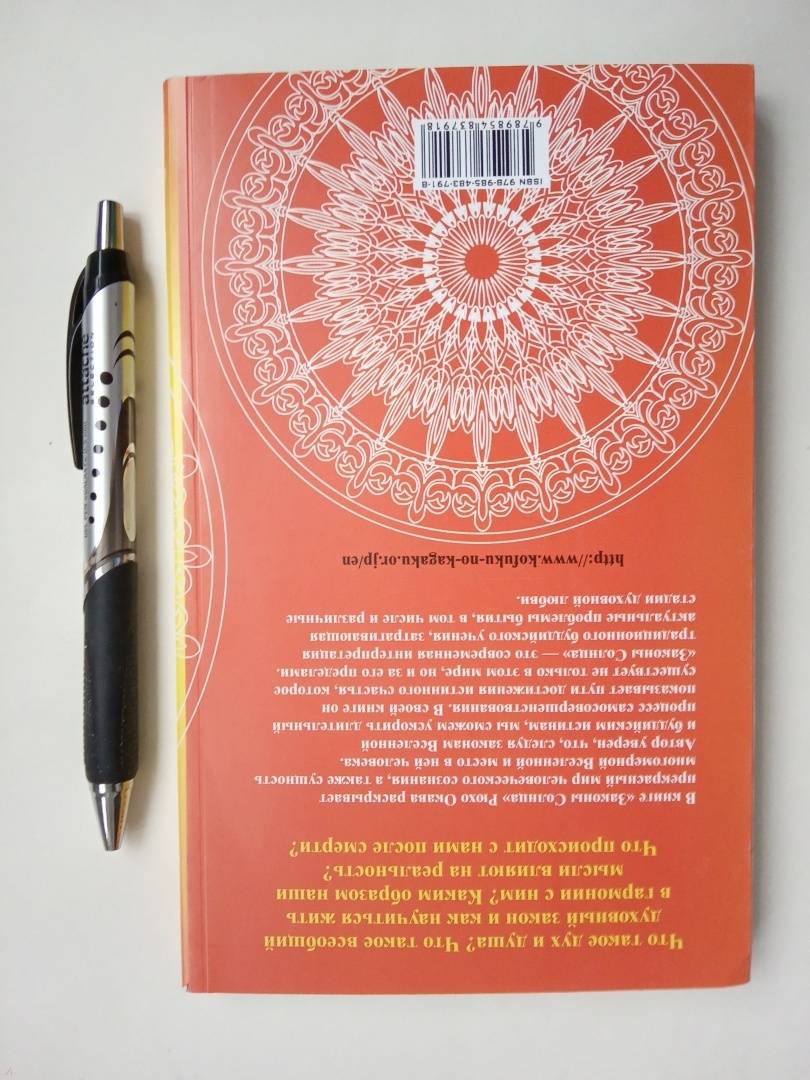 Что такое дух и душа? Что такое всеобщий
духовный закон и как научиться жить
в гармонии с ним? Каким образом наши
мысли влияют на реальность?
Что происходит с нами после смерти?
В книге «Законы Солнца» Рюхо Окава раскрывает
прекрасный мир человеческого сознания, а также сущность
многомерной Вселенной и место в ней человека.
Автор уверен, что, следуя законам Вселенной
и буддийским истинам, мы сможем ускорить длительный
процесс самосовершенствования. В своей книге он
показывает пути достижения истинного счастья, которое
существует не только в этом мире, но и за его пределами.
«Законы Солнца» — это современная интерпретация
традиционного буддийского учения, затрагивающая
актуальные проблемы бытия, в том числе и различные
стадии духовной любви.
http://www.kofuku-no-kagaku.or.jp/en
ISBN 978-985-483-791-8
9789854837918
attache
SELECTION